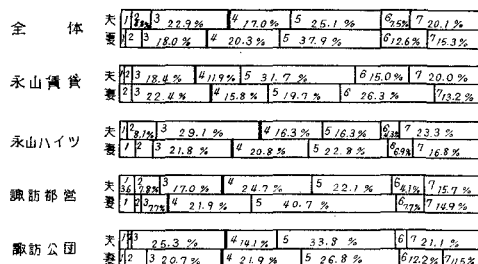 全体
夫 1 2 3 22.9% 4 17.0% 5 25.1% 6 7.5% 7 20.1%
妻 1 2 3 18.0% 4 20.3% 5 37.9% 6 12.6% 7 15.3%
永山賃貸
夫 1 2 3 18.4% 4 11.9% 5 31.7% 6 15.0% 7 20.0%
妻 2 3 22.4% 4 15.8% 5 19.7% 6 26.3% 7 13.2%
永山ハイツ
夫 1 2 8.1% 3 29.1% 4 16.3% 5 16.3% 6 7 23.3%
妻 1 2 3 21.8% 4 20.8% 5 22.8% 6 6.9% 7 16.8%
諏訪都営
夫 1 3.6 2 7.8% 3 17.0% 4 24.7% 5 22.1% 6 4.1% 7 15.7%
妻 1 2 3 7.7% 4 21.9% 5 40.7% 6 7.7% 7 14.9%
諏訪公団
夫 1 3 25.3% 4 14.1% 5 33.8% 6 7 21.1%
妻 1 2 3 20.7% 4 21.9% 5 26.8% 6 12.2% 7 11.5%